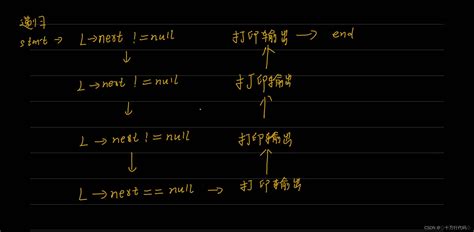 递归
start → L→next != null 打印输出 → end
↓ ↑
L→next != null 打印输出
↓ ↑
L→next != null 打印输出
↓ ↑
L→next == null → 打印输出
CSDN @三十万行代码